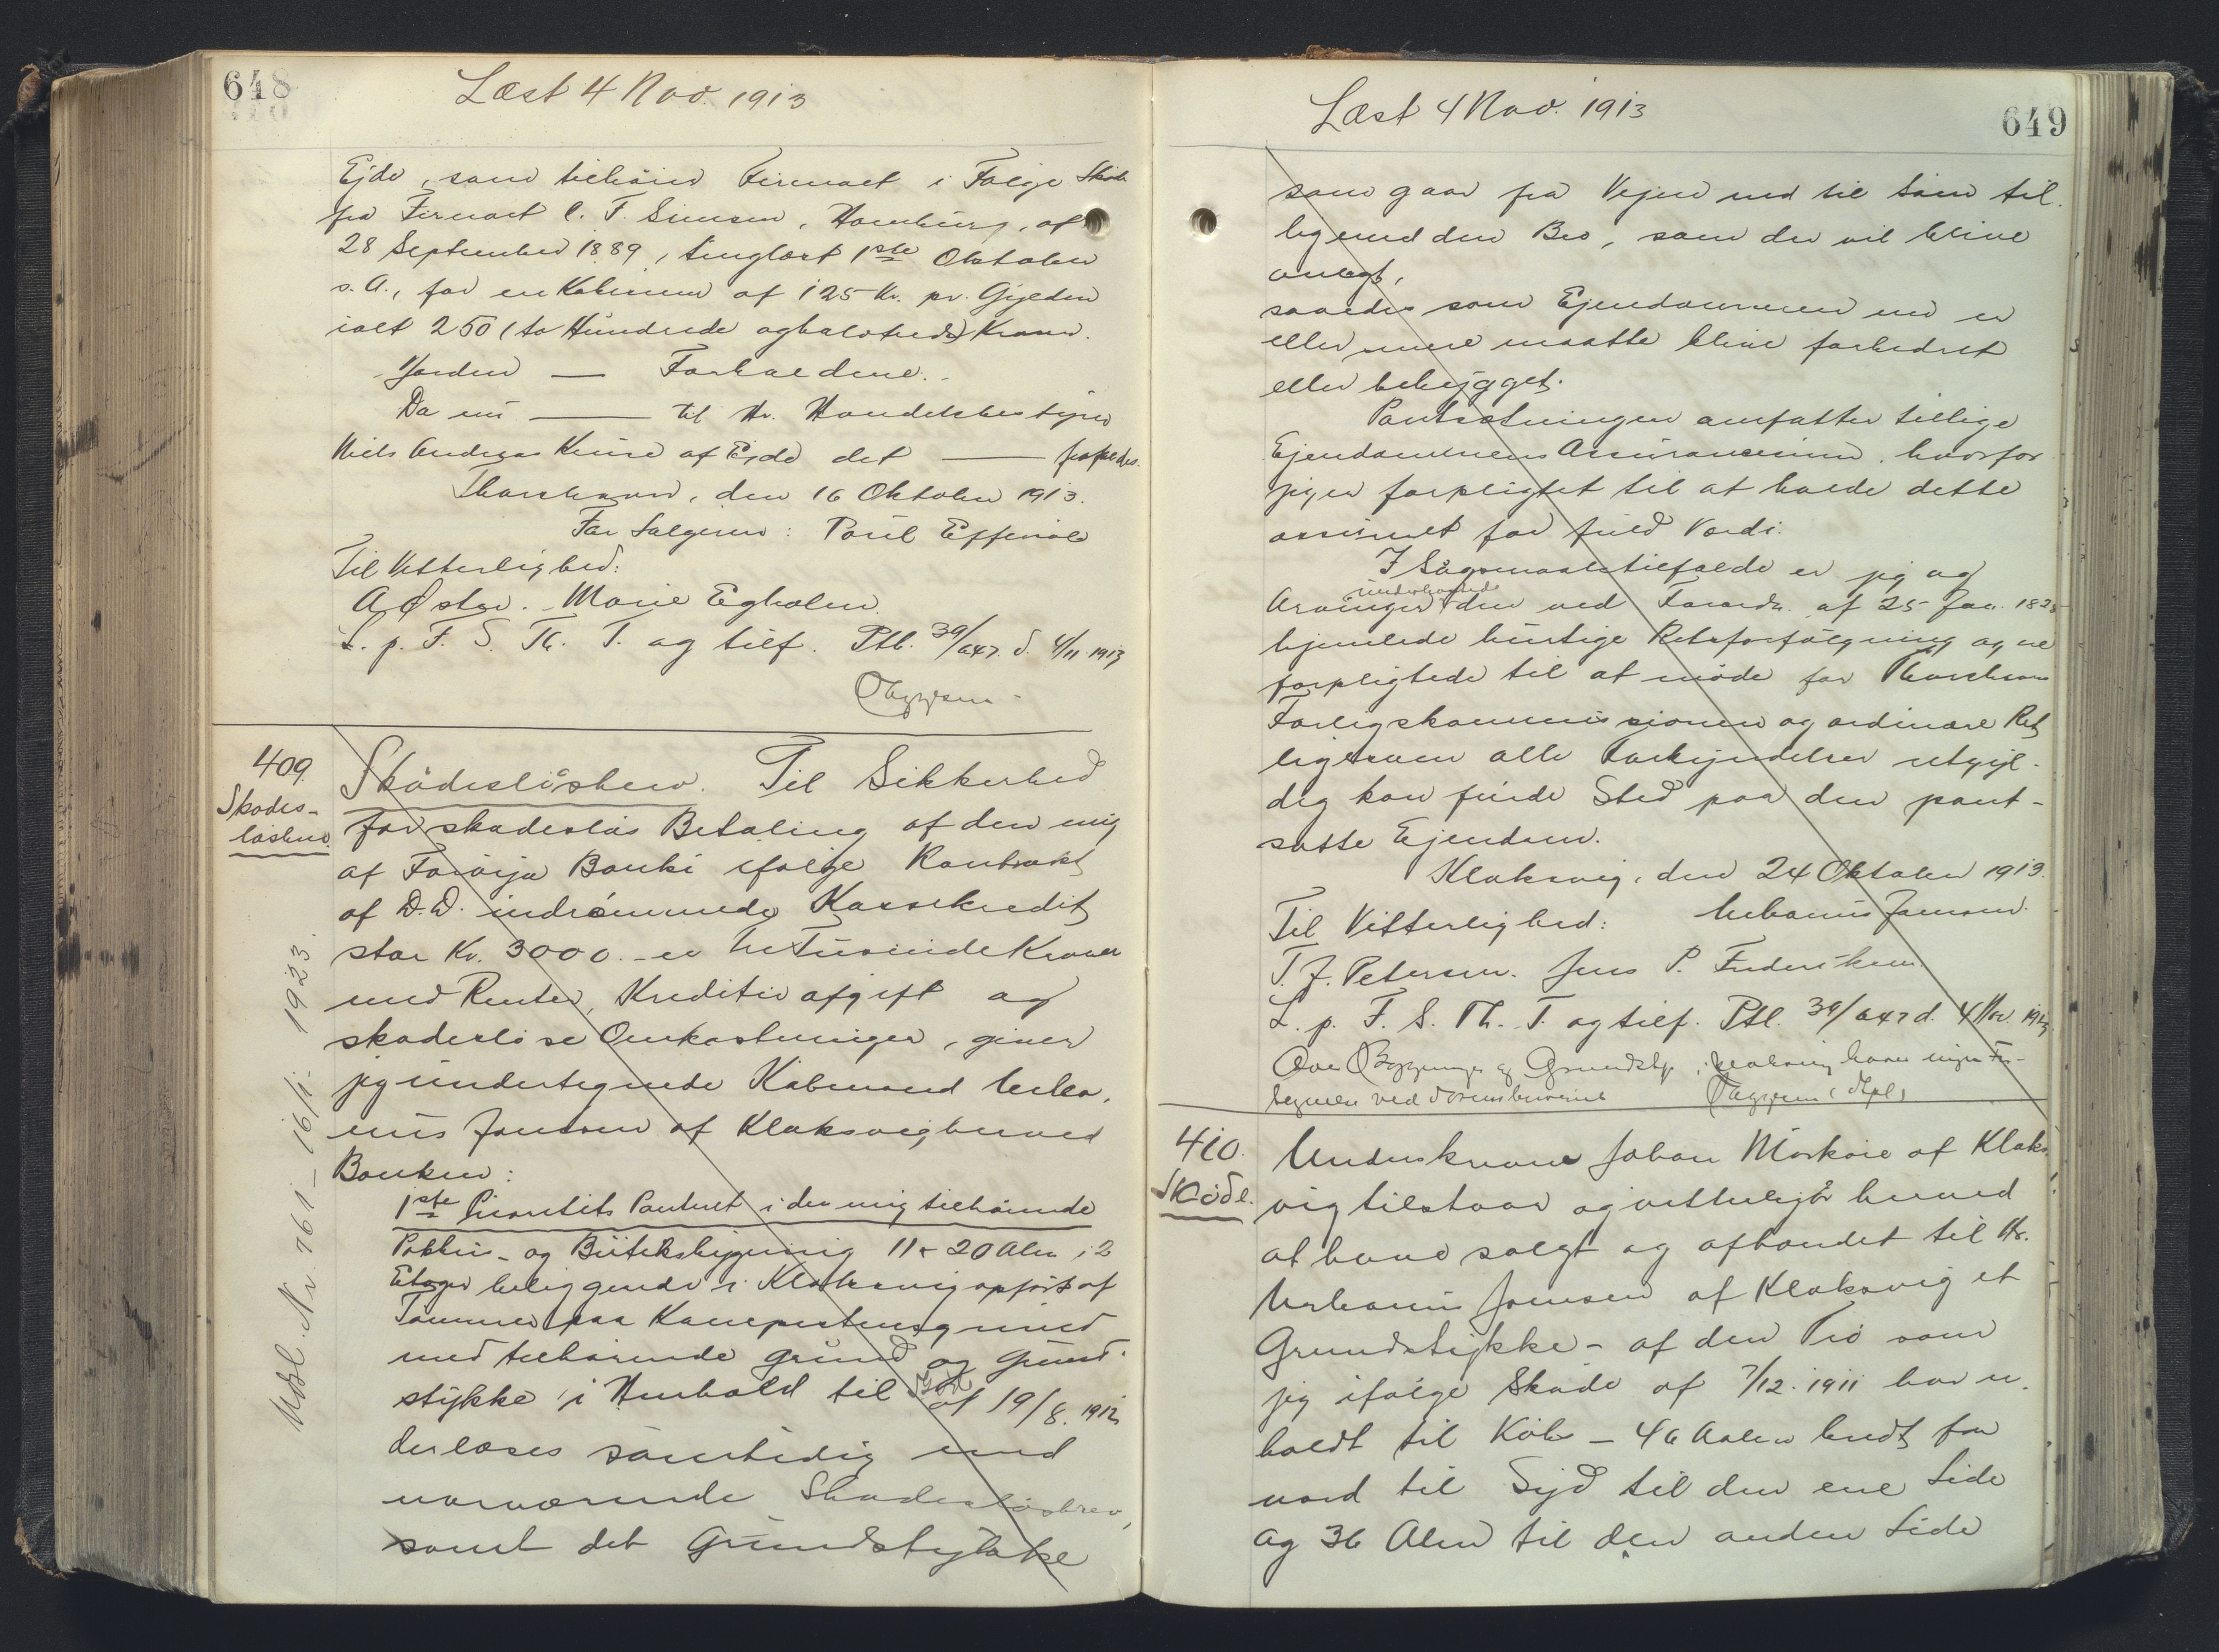 648
Læst 4 Nov. 1913
Ejde, som tilhører Firmaet i Følge Skøde
fra Firmaet C. F. Simsen, Hamburg, af
28 September 1889, tinglæst 1ste Oktober
s. A., for en Købesum af 125 Kr. pr. Gylden
ialt 250 (to Hundrede og halvtreds) Kroner.
Jorden — Forholdene.
Da nu — til Hr. Handelsbestyrer
Niels Andreas Kruse af Ejde det — frafaldes.
Thorshavn, den 16 Oktober 1913.
For Sælgeren: Poul Effersøe
Til Vitterlighed:
A. Østrø. Marie Egholm.
L. p. F. S. Th. T. og tilf. Ptb. 39/647. d. 4/11 1913
409.
Skades-
løsbrev.
Skadesløsbrev. Til Sikkerhed
for skadesløs Betaling af den mig
af Føroya Banki ifølge Kontrakt
af D.D. indrømmede Kassekredit
stor Kr. 3000.- er tre Tusinde Kroner
med Renter, Kreditivafgift og
skadesløse Omkostninger, giver
jeg undertegnede Købmand Urba-
nus Joensen af Klaksvig herved
Banken:
1ste Prioritets Panteret i den mig tilhørende
Pakhus- og Butiksbygning 11 x 20 Alen i 2
Etager beliggende i Klaksvig opført af
Tømmer paa Kampestensgrund
med tilhørende Grund og Grund-
stykke i Henhold til Skøde af 19/8. 1912
der læses samtidig med
nærværende Skadesløsbrev,
samt det Grundstykke
Udsl. Nr. 761 - 16/1. 1923.
649
Læst 4 Nov. 1913
som gaar fra Vejen ned til Søen til-
ligemed den Bro, som der vil blive
anlagt,
saaledes som Ejendommen nu er
eller mere maatte blive forbedret
eller bebygget.
Pantsætningen omfatter tillige
Ejendommens Assurancesum, hvorfor
jeg er forpligtet til at holde dette
assureret for fuld Værdi.
I Søgsmaalstilfælde er jeg og
Arvinger underkastede den ved Forordn. af 25 Jan. 1828
hjemlede hurtige Retsforfølgning og er
forpligtede til at møde for Thorshavns
Forligskommission og ordinære Ret
ligesom alle Forkyndelser retsgyl-
dig kan finde Sted paa den pant-
satte Ejendom.
Klaksvig, den 24 Oktober 1913.
Til Vitterlighed: Urbanus Joensen.
T. J. Petersen. Jens P. Frederiksen.
L. p. F. S. Th. T. og tilf. Ptb. 39/647 d. 4 Nov. 1913
Over Bygninger og Grundstk. i Klaksvig haves ingen For-
tegnelse ved dorenskriveriet
410.
Skøde.
Underskrevne Johan Mörköre af Klaks-
vig tilstaar og vitterliggør herved
at have solgt og afhændet til Hr.
Urbanus Joensen af Klaksvig et
Grundstykke - af den Trø som
jeg ifølge Skøde af 7/12. 1911 har er-
holdt til Købs - 46 Aalen bredt fra
nord til Syd til den ene Side
og 36 Alen til den anden Side